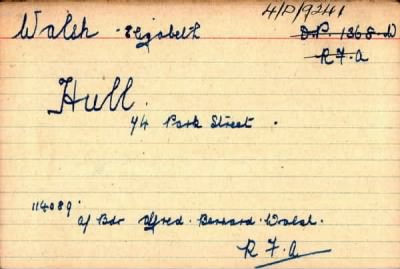 4/P/9241
Walsh Elizabeth D.P. 1368.W
R F.A
Hull.
74 Park Street.
114089
a/ Bdr Alfred. Bernard. Walsh.
R F.A